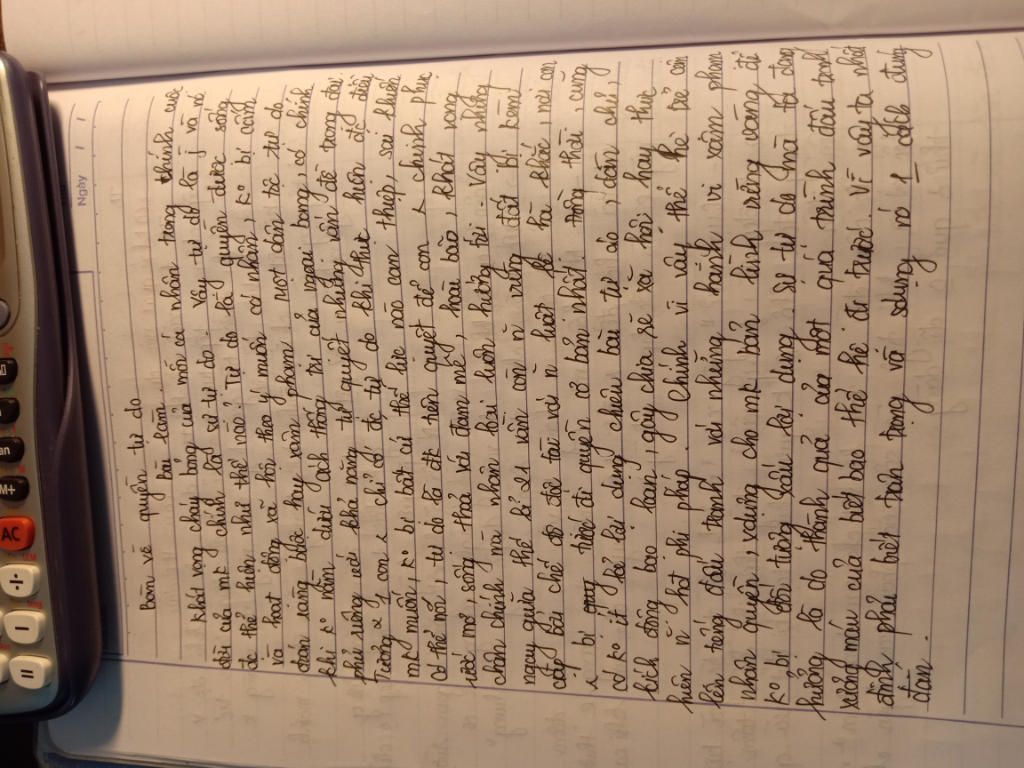 Ngày / /
Bàn về quyền tự do
Bài làm.
Khát vọng cháy bỏng của mỗi cá nhân trong thánh cuộc
đời của mk chính là sự tự do. Vậy tự do là j và nó
đc thể hiện như thế nào? Tự do là quyền được sống
và hoạt động xã hội theo ý muốn cá nhân, ko bị cấm
đoán ràng buộc hay xâm phạm. Một dân tộc tự do
khi ko nằm dưới ách thống trị của ngoại bang, có chính
phủ riêng với khả năng tự quyết những vấn đề trong đại
Tương tự con ng chỉ có đc tự do khi thực hiện đc điều
mk muốn, ko bị bất cứ thế lực nào can thiệp, sai khiến
Có thể nói, tự do là đk tiên quyết để con ng chinh phục
ước mơ, sống thỏa với đam mê, hoài bão, khát vọng
chân chính mà nhân loại luôn hướng tới. Vậy nhưng
ngay giữa thế kỉ 21 vẫn còn n vùng đất bị kềm
cặp bởi chế độ độc tài với n luật lệ hà khắc, nơi con
ng bị tước đi quyền cơ bản nhất. Đồng thời, cũng
có ko ít kẻ lợi dụng chiêu bài tự do, dân chủ,
kích động bạo loạn, gây chia rẽ xã hội hay thực
hiện n hđ phi pháp. Chính vì vậy thế hệ trẻ cần
lên tiếng đấu tranh với những hành vi xâm phạm
nhân quyền, xdựng cho mk bản lĩnh vững vàng để
ko bị đối tượng xấu lợi dụng. Sự tự do mà ta đang
hưởng là do thành quả của một quá trình đấu tranh
xương máu của biết bao thế hệ đi trước. Vì vậy ta nhất
định phải biết trân trọng và sdụng nó 1 cách đúng
đắn.
AC
M+
÷
=